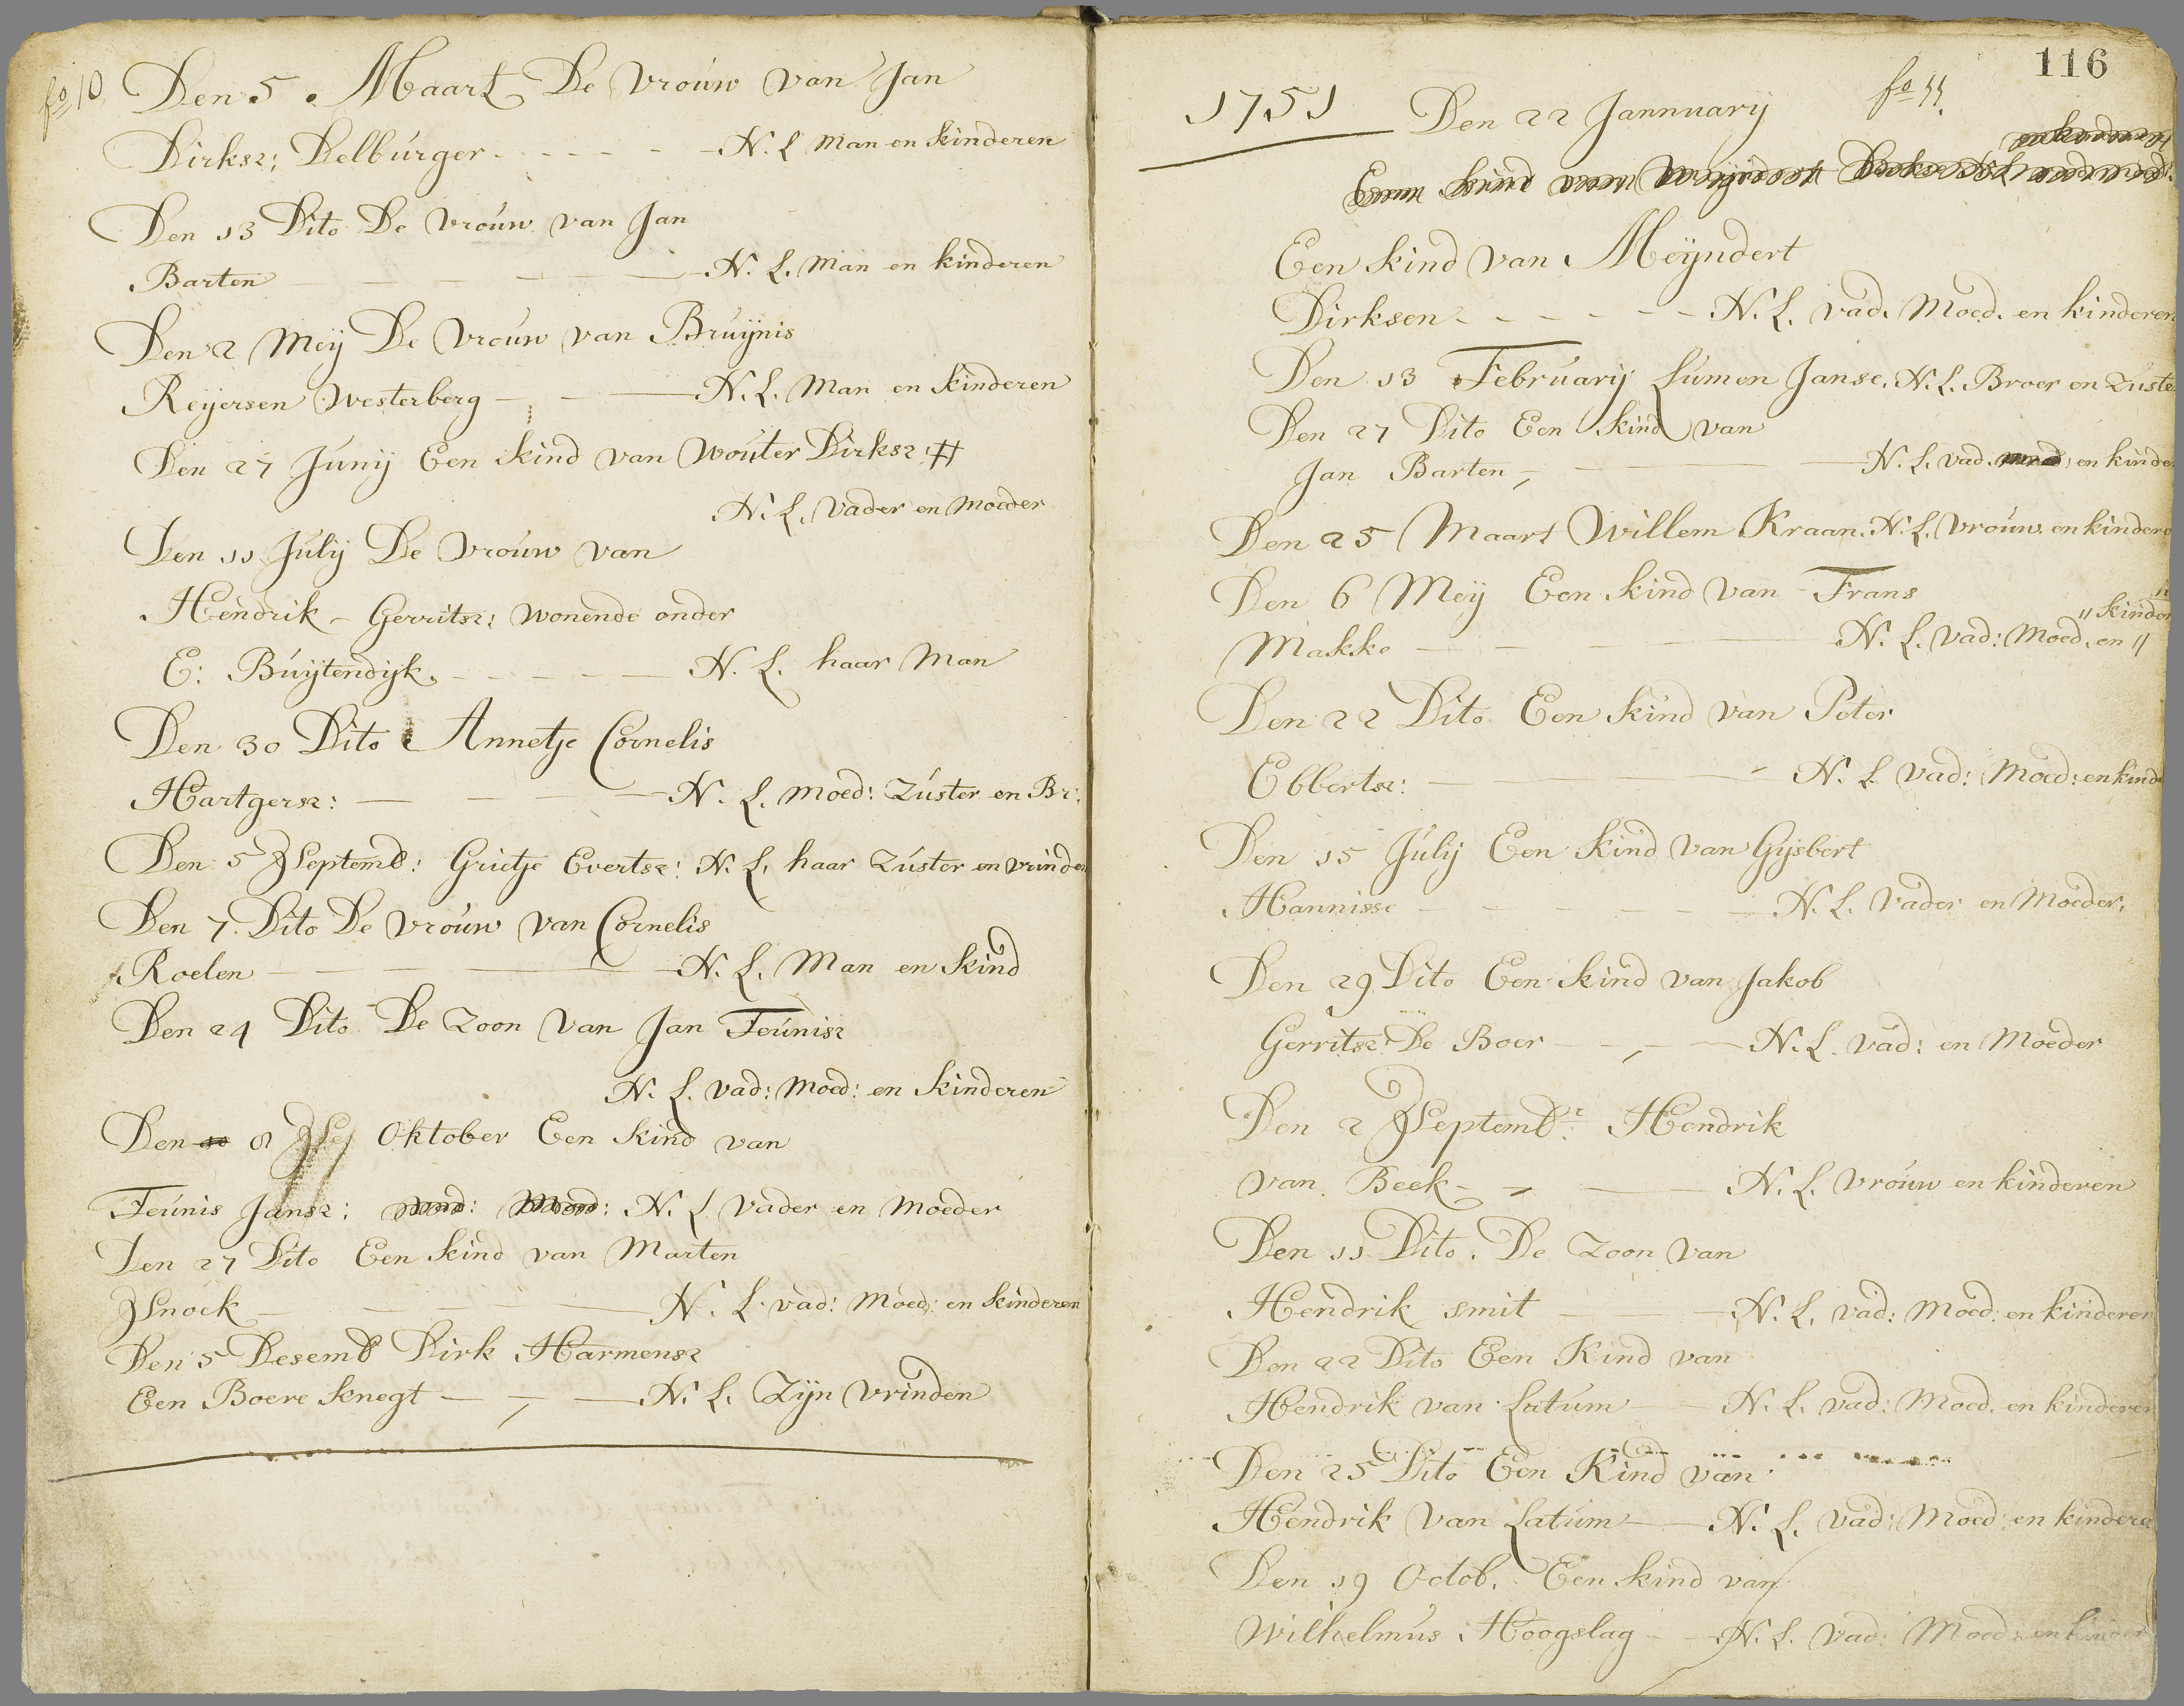 fo 10
Den 5. Maart De Vrouw van Jan
Dirksz: Delburger - - - - - N. L. Man en kinderen
Den 13 Dito De Vrouw van Jan
Barten - - - - - N. L. Man en kinderen
Den 2 Meij De Vrouw van Bruijnis
Reijersen Westerberg - - - N. L. Man en kinderen
Den 27 Junij Een kind van Wouter Dirksz:
N. L. Vader en Moeder
Den 11 Julij De Vrouw van
Hendrik - Gerritsz: wonende onder
E: Buijtendijk. - - - - - N. L. haar Man
Den 30 Dito Annetje Cornelis
Hartgersz: - - - - N. L. Moed: Zuster en Br:
Den 5 Septemb: Grietje Evertsz: N. L. haar Zuster en vrinden
Den 7 Dito De Vrouw van Cornelis
Roelen - - - - N. L. Man en kind
Den 24 Dito De Zoon van Jan Teunisz
N. L. Vad: Moed: en kinderen
Den 8 Oktober Een kind van
Teunis Jansz: N. L. Vader en Moeder
Den 27 Dito Een kind van Marten
Snoek - - - - N. L. vad: Moed: en kinderen
Den 5 Desemb Dirk Harmensz
Een Boere knegt - - - N. L. Zijn Vrinden
116
fo 11.
1751 Den 22 Jannuarij
Een kind van Meijndert
Een kind van Meijndert
Dirksen - - - - - - N. L. Vad. Moed. en kinderen
Den 13 Februarij Lumen Janse. N. L. Broer en Zuste
Den 27 Dito Een kind van
Jan Barten, - - - N. L. vad. moed: en kinde
Den 25 Maart Willem Kraan. N. L. Vrouw en kindere
Den 6 Meij Een kind van Frans
" kinder "
Makke - - - - - N. L. Vad: Moed. en "
Den 22 Dito Een kind van Peter
Ebbertsz: - - - N. L. Vad: Moed: en kind
Den 15 Julij Een kind van Gijsbert
Hannisse - - - - - N. L. Vader en Moeder.
Den 29 Dito Een kind van Jakob
Gerritsz: De Boer - - - N. L. Vad: en Moeder
Den 2 Septembr: Hendrik
van Beek - - - N. L. Vrouw en kinderen
Den 11 Dito. De Zoon van
Hendrik smit - - - N. L. Vad: Moed: en kinderen
Den 22 Dito Een Kind van
Hendrik van Latum - - N. L. vad: Moed. en kinderen
Den 25 Dito Een Kind van
Hendrik Van Latum - - N. L. Vad: Moed: en kindere
Den 19 Octob. Een kind van
Wilhelmus Hoogslag - - N. L. Vad: Moed: en kinder